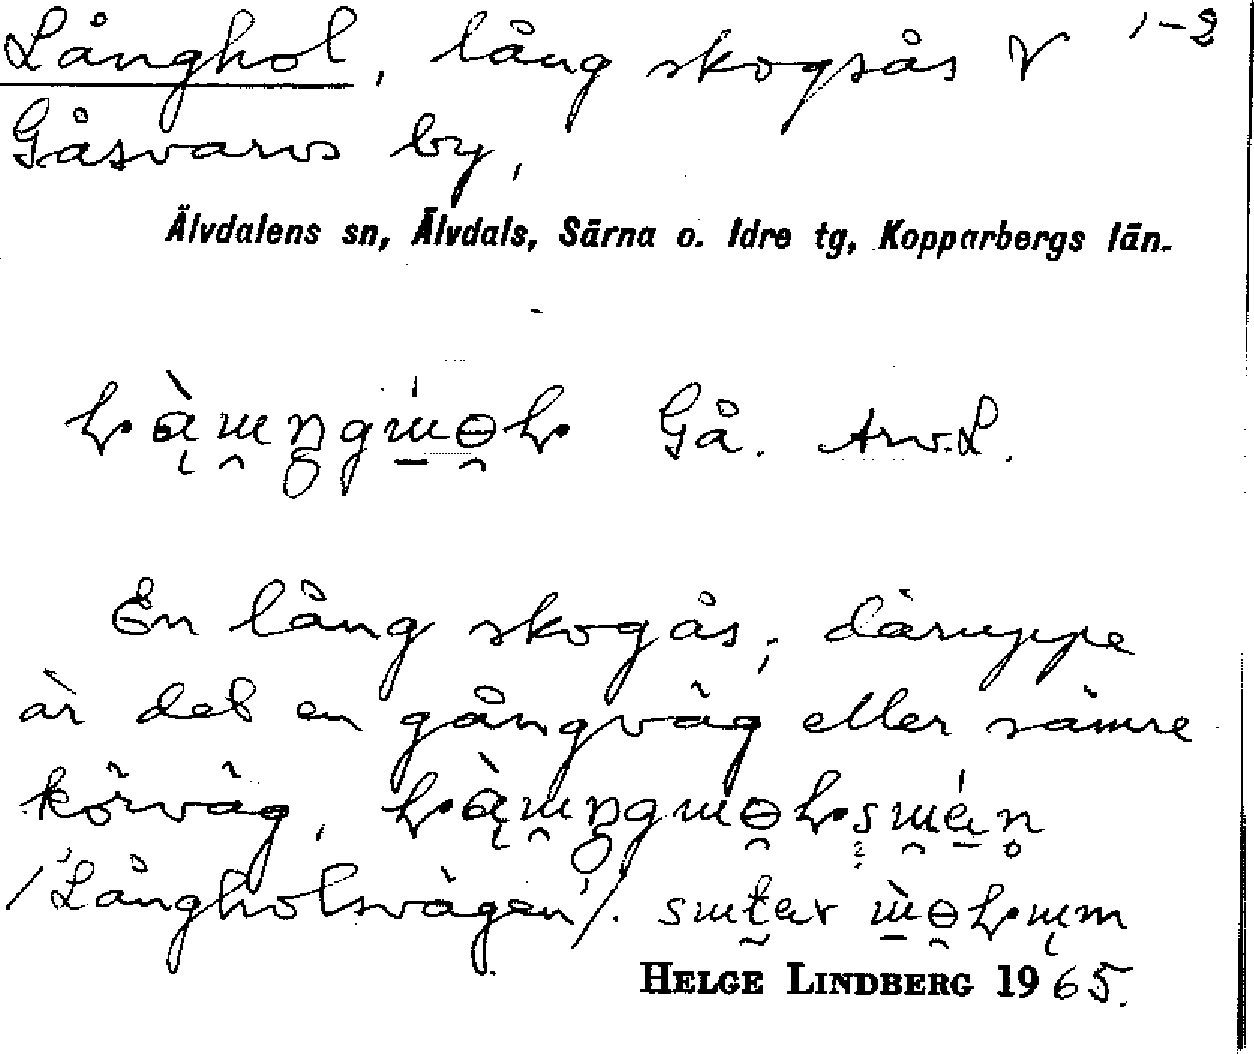 Långhol, lång skogsås V 1-2
Gåsvarvs by,
Älvdalens sn, Älvdals, Särna o. Idre tg, Kopparbergs län.
Gå. Arv.L.
En lång skogås, däruppe
är det en gångväg eller sämre
körväg,
/'Långholsvägen'/.
HELGE LINDBERG 1965.